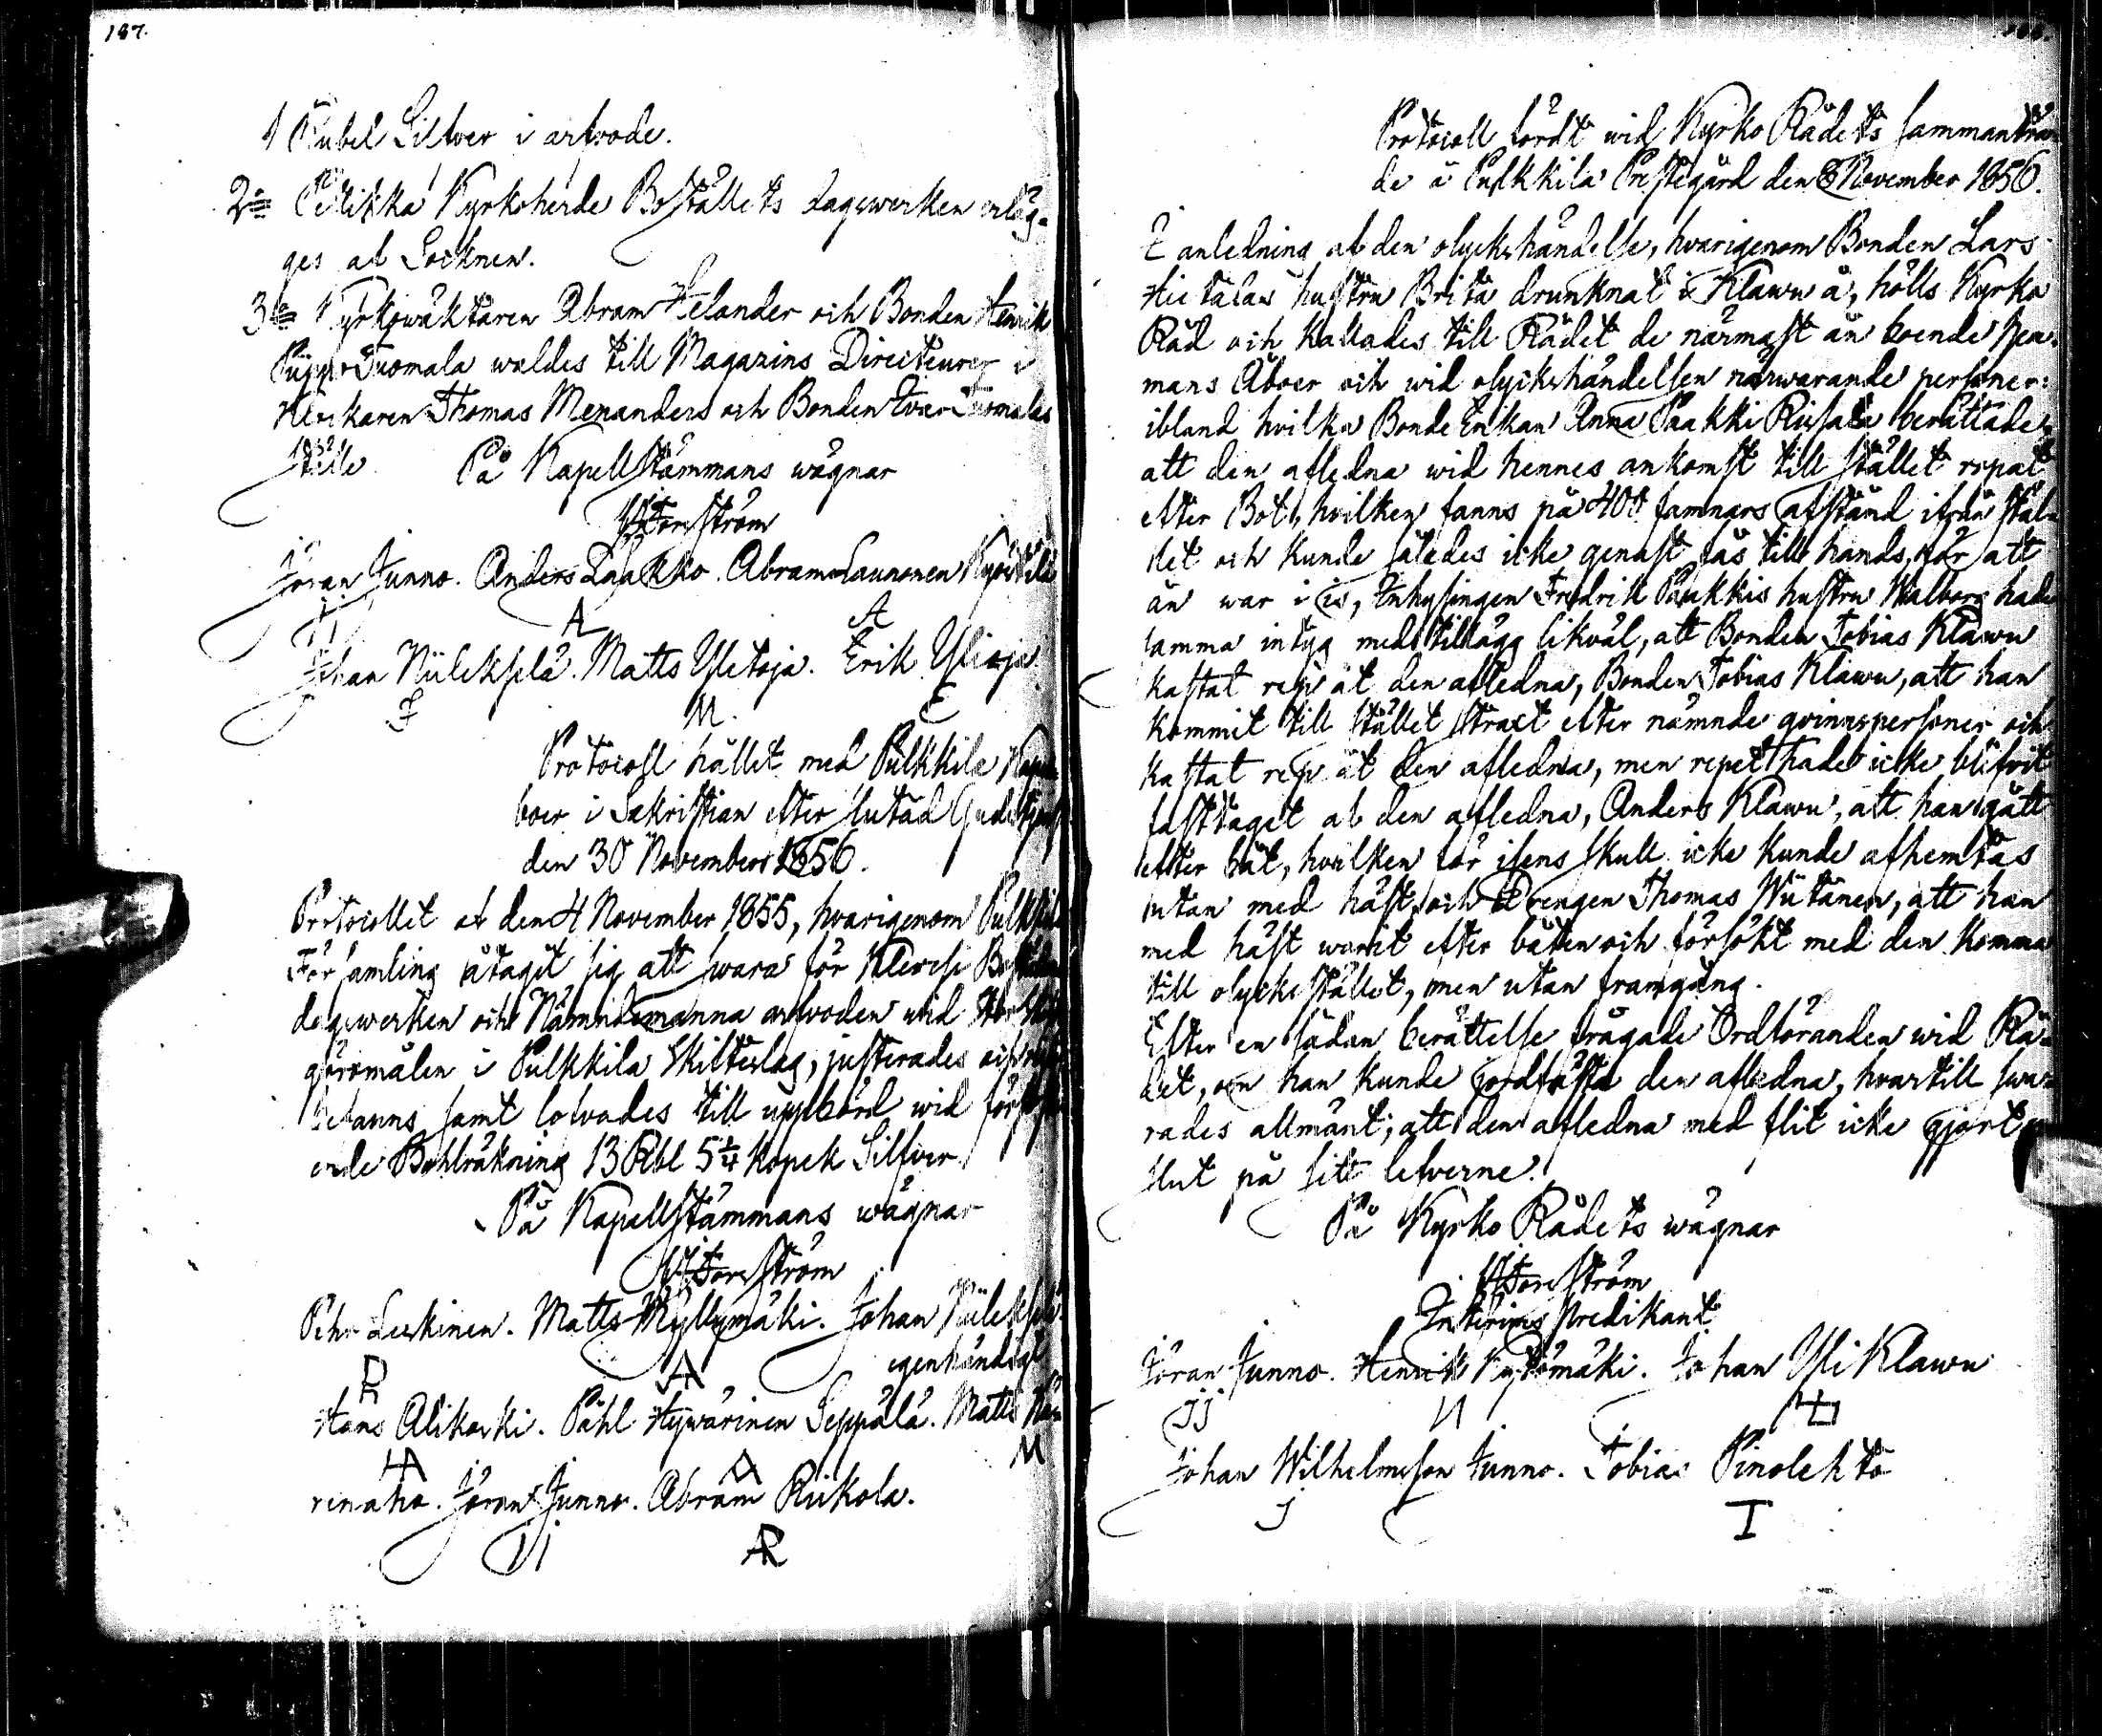 187.
1 Rubel Silfver i arfvode.
2= Kyrkoherde Boställets dagswerken erläg-
ges af Socknen.
3= Kyrkowäktaren Abram Helander och Bonden Henrik
Tuomala waldes till Magazins Directeurer i
Klockaren Thomas Menanders och Bonden Iwar Tuomalas
ställe. På Kapellstämmans wägnar
Forsström
Jöran Junno. Anders Laakko. Abram Launonen
JJ A A
Johan Niileksela. Matts Ylitoja. Erik Ylioja.
J M. E
Protocoll hållet med Pulkkila
boer i Sakristian efter slutad
den 30 November 1856.
Protocollet af den 4 November 1855, hvarigenom Pulkkila
Församling åtagit sig att swara för Klercsi
dagswerken och Nämndemanna arfvoden wid
göromålen i Pulkkila Skifteslag, justerades och
befanns samt lofvades till uppbörd wid
ende Bohlräkning 13 Rbl 5 1/4 Kopek Silfver
På Kapellstämmans wägnar
Forsström
Pehr Leskinen. Matts Myllymäki. Johan
P A egenhändigt
Hans Alikoski. Påhl Hywärinen Seppälä. Matts
HA M
rinaho. Jöran Junno. Abram Riikola.
JJ AR
Protocoll fördt wid Kyrko Rådets sammanträ-
de å Pulkkila Prestegård den 8 November 1856.
I anledning af den olyckshändelse, hvarigenom Bonden Lars
Hietalas hustru Brita drunknat i Klawu å, hölls Kyrko
Råd och kallades till Rådet de närmast ån boende hem-
mans Åboer och wid olyckshändelsen närwarande personer:
ibland hvilka Bonde Enkan Anna Paakki berättade,
att den aflidna wid hennes ankomst till stället ropat
efter Båt, hvilken fanns på 400 famnars afstånd ifrån stäl-
let och kunde således icke genast fås till hands, för att
ån war i is, Inhysingen Fredrik Paukkis hustru Walborg hade
samma intyg med tillägg likväl, att Bonden Tobias Klawu
kastat rep åt den aflidna, Bonden Tobias Klawu, att han
kommit till stället straxt efter nämnde qvinnspersoner och
kastat rep åt den aflidna, men repet hade icke blifvit
fasttaget af den aflidna, Anders Klawu, att han gått
efter båt, hvilken för isens skull icke kunde afhemtas
utan med häst, och Drengen Thomas Wiitanen, att han
med häst warit efter båten och försökt med den komma
till olycksstället, men utan framgång.
Efter en sådan berättelse frågade Ordföranden wid Rå-
det, om han kunde jordfästa den aflidna, hvartill swa-
rades allmänt; att den aflidna med flit icke gjort
slut på sitt lefverne.
På Kyrko Rådets wägnar
Forsström
Interims Predikant
Jöran Junno. Henrik Kytömäki. Johan Yli Klawu
JJ
Johan Wilhelmsson Junno. Tobias Pinolehto
J I